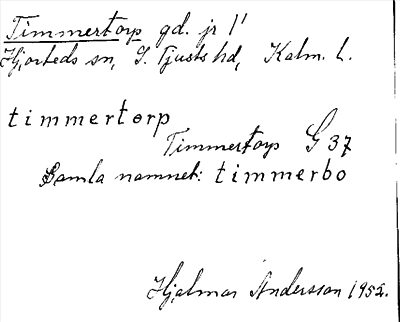 Timmertorp gd. jr 1'
Hjorteds sn, S. Tjusts hd, Kalm. L.
timmertorp
Timmertorp G 37
Gamla namnet: timmerbo
Hjalmar Andersson 1952.